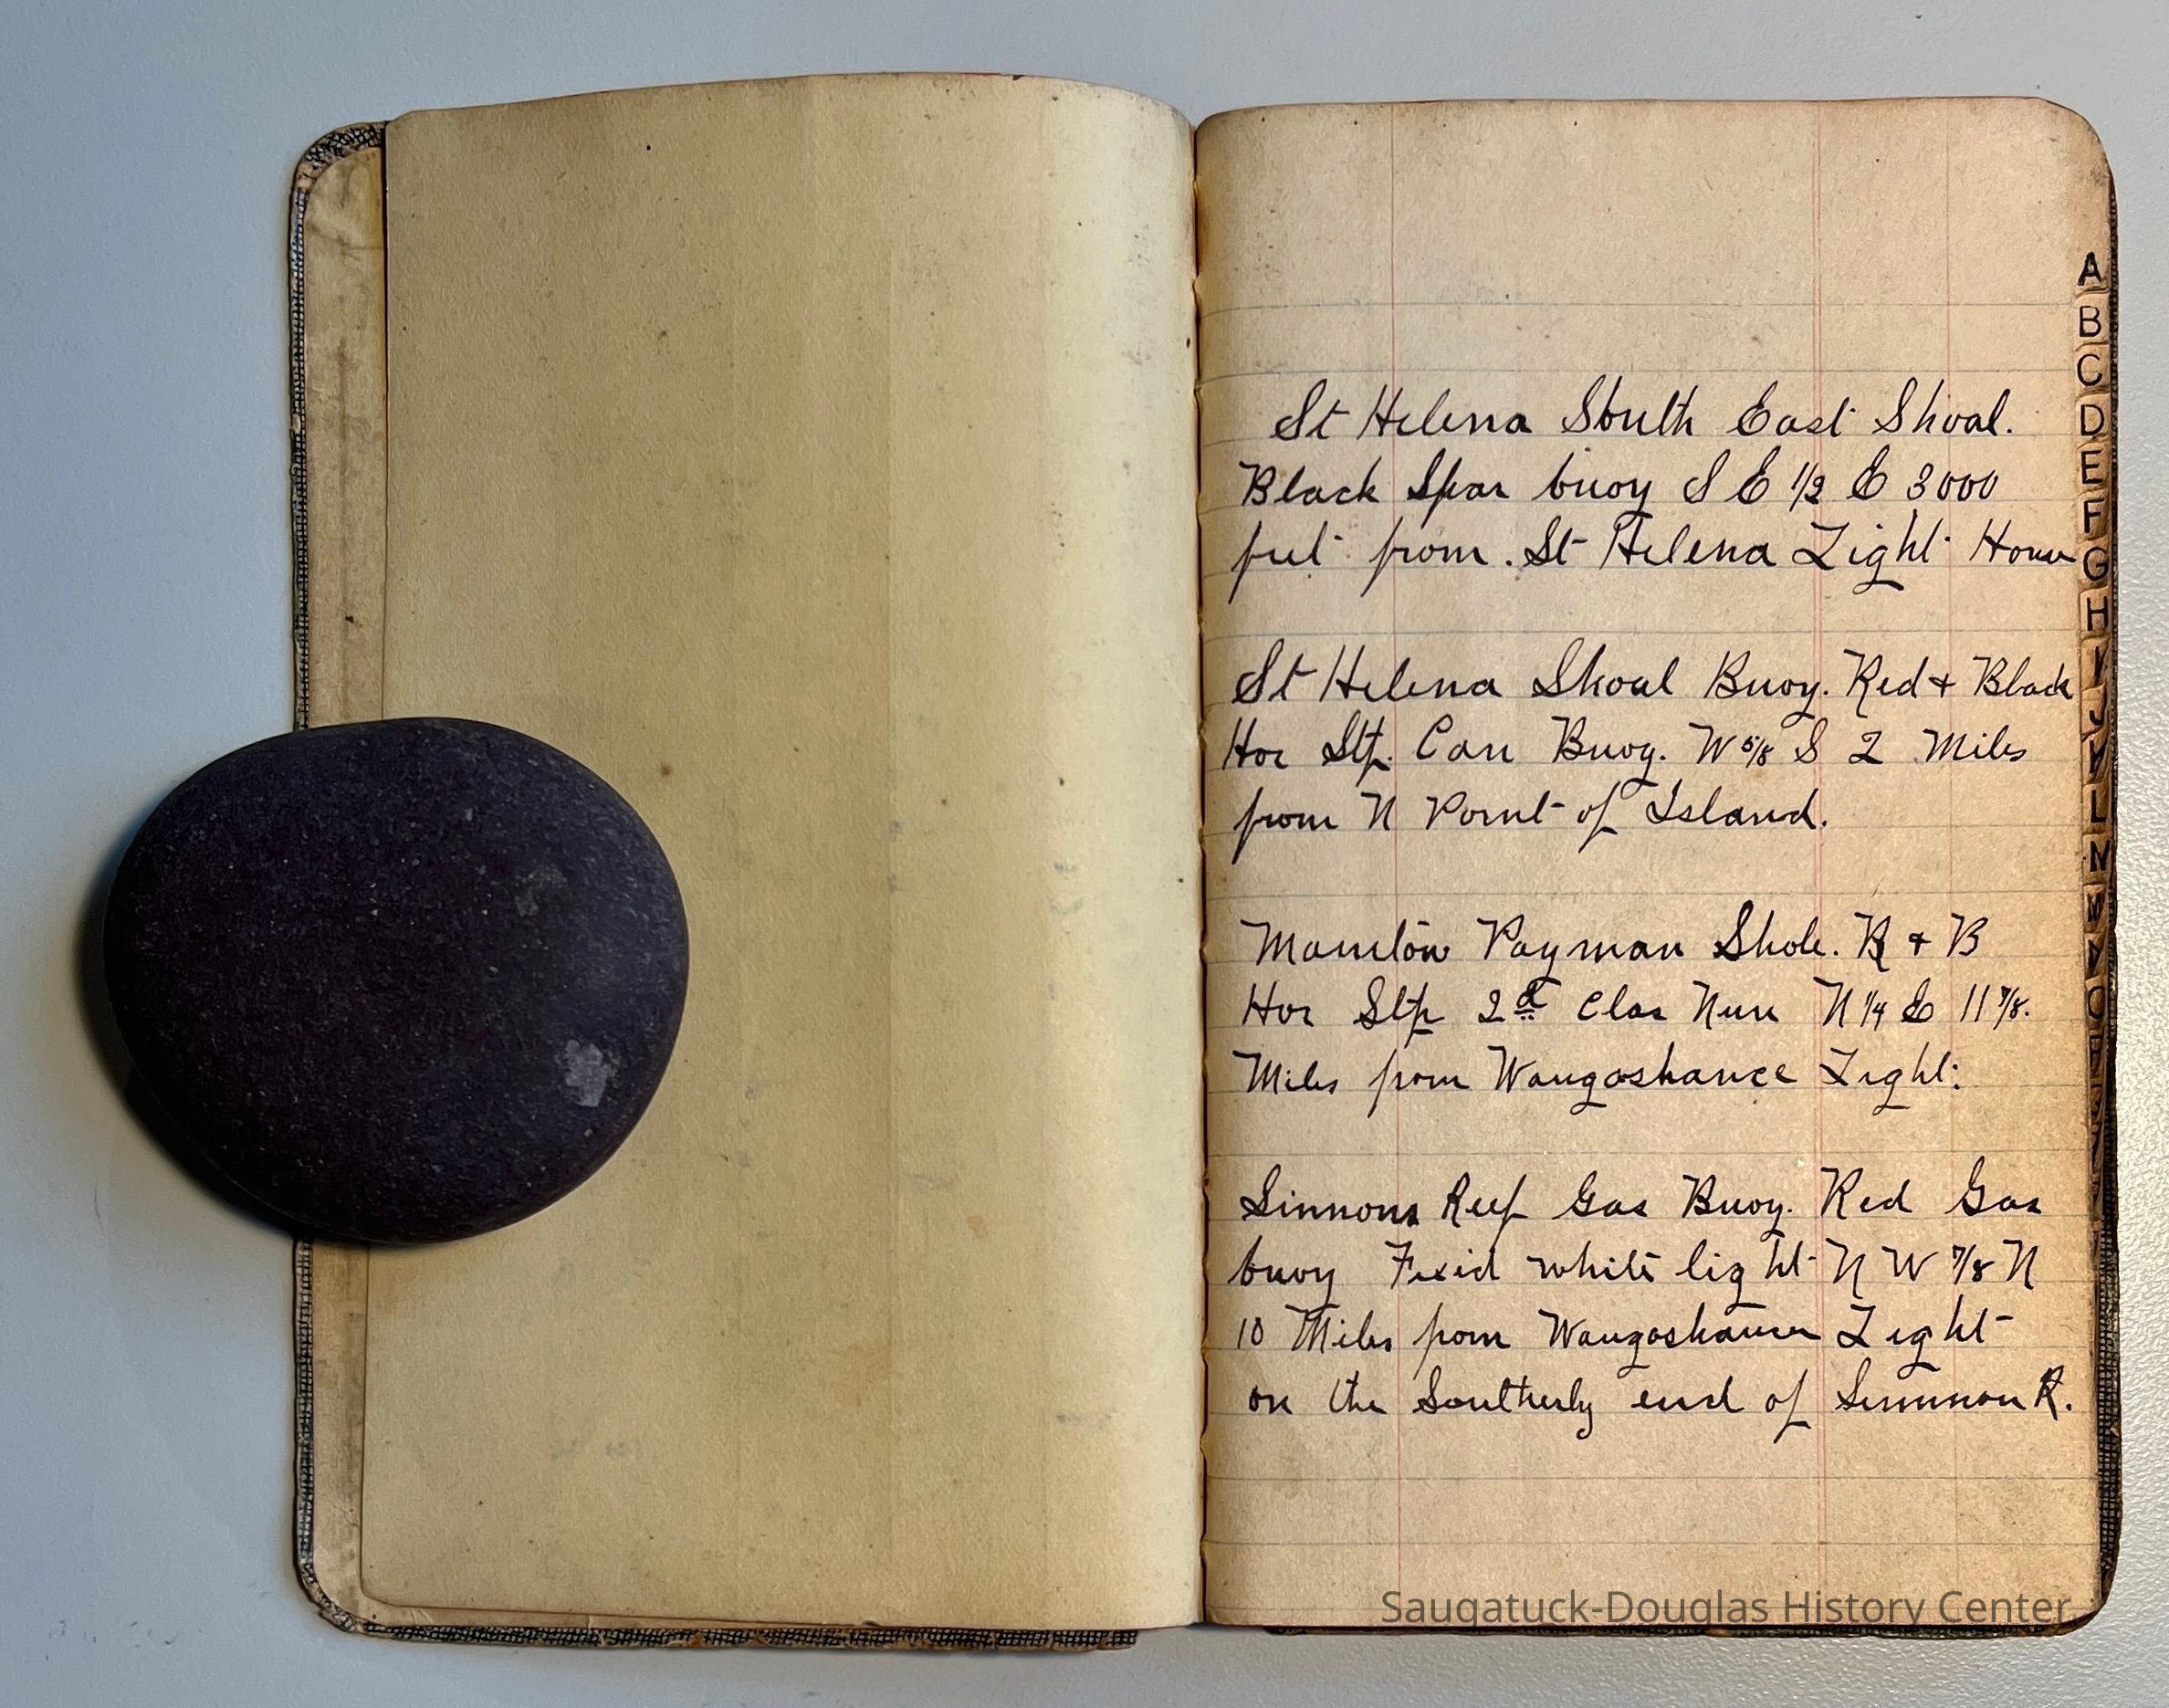 St Helena South East Shoal.
Black Spar buoy S E 1/2 E 3000
feet from. St Helena Light House
St Helena Shoal Buoy. Red + Black
Hor Stp. Can Buoy. W 5/8 S 2 Miles
from N Point of Island.
Payman Shole. R + B
Hor Stp 2d Clas Nun N 1/4 E 11 7/8.
Miles from Waugoshance Light.
Simmons Reef Gas Buoy. Red Gas
buoy Fixed white light N W 7/8 N
10 Miles from Waugoshance Light
on the Southerly end of Simmon R.
A
B
C
D
E
F
G
H
I
J
K
L
M
Saugatuck-Douglas History Center